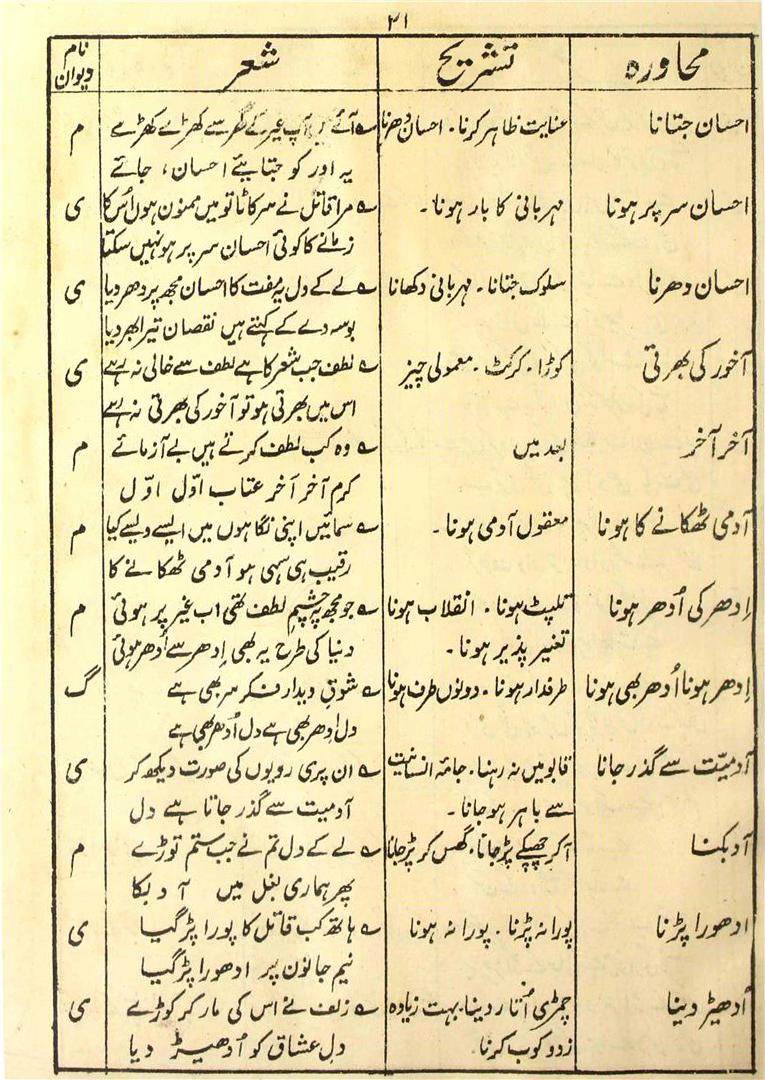 ۳۱
محاورہ تشریح شعر نام دیوان
احسان جتانا عنایت ظاہر کرنا۔ احسان دھرنا ؎ آئے ہیں آپ غیر کے گھر سے کھڑے کھڑے م
یہ اور کو جتائیے احسان، جائے
احسان سر پر ہونا مہربانی کا بار ہونا۔ ؎ مرا قاتل نے سر کاٹا تو میں ممنون ہوں اُس کا ی
زمانے کا کوئی احسان سر پر ہو نہیں سکتا
احسان دھرنا سلوک جتانا۔ مہربانی دکھانا ؎ لے کے دل یہ مفت کا احسان مجھ پر دھر دیا ی
بوسہ دے کے کہتے ہیں نقصان تیرا بھر دیا
آخور کی بھرتی کوڑا۔ کرکٹ۔ معمولی چیز ؎ لطف جب شعر کا ہے لطف سے خالی نہ رہے ی
اس میں بھرتی ہو تو آخور کی بھرتی نہ رہے
آخر آخر بعد میں ؎ وہ کب لطف کرتے ہیں بے آزمائے م
کرم آخر آخر عتاب اوّل اوّل
آدمی ٹھکانے کا ہونا معقول آدمی ہونا۔ ؎ سمائیں اپنی نگاہوں میں ایسے ویسے کیا م
رقیب ہی سہی ہو آدمی ٹھکانے کا
اِدھر کی اُدھر ہونا تلپٹ ہونا۔ انقلاب ہونا ؎ جو مجھ پہ چشمِ لطف تھی اب غیر پر ہوئی م
تغیر پذیر ہونا۔ دنیا کی طرح یہ بھی اِدھر سے اُدھر ہوئی
اِدھر ہونا اُدھر بھی ہونا طرفدار ہونا۔ دونوں طرف ہونا ؎ شوقِ دیدار فکر سر بھی ہے گ
دل اِدھر بھی ہے دل اُدھر بھی ہے
آدمیّت سے گذر جانا قابو میں نہ رہنا۔ جامۂ انسانیت ؎ ان پری رویوں کی صورت دیکھ کر ی
سے باہر ہو جانا۔ آدمیت سے گذر جاتا ہے دل
آدبکنا آ کر چھپکے پڑ جانا۔ گھس کر پڑ جانا ؎ لے کے دل تم نے جب ستم توڑے م
پھر ہماری بغل میں آ دبکا
ادھورا پڑنا پورا نہ پڑنا۔ پورا نہ ہونا ؎ ہاتھ کب قاتل کا پورا پڑ گیا ی
نیم جانوں پر ادھورا پڑ گیا
اُدھیڑ دینا چمڑی اُتار دینا۔ بہت زیادہ ؎ زلف نے اس کی مار کر کوڑے ی
زدوکوب کرنا۔ دلِ عشاق کو اُدھیڑ دیا